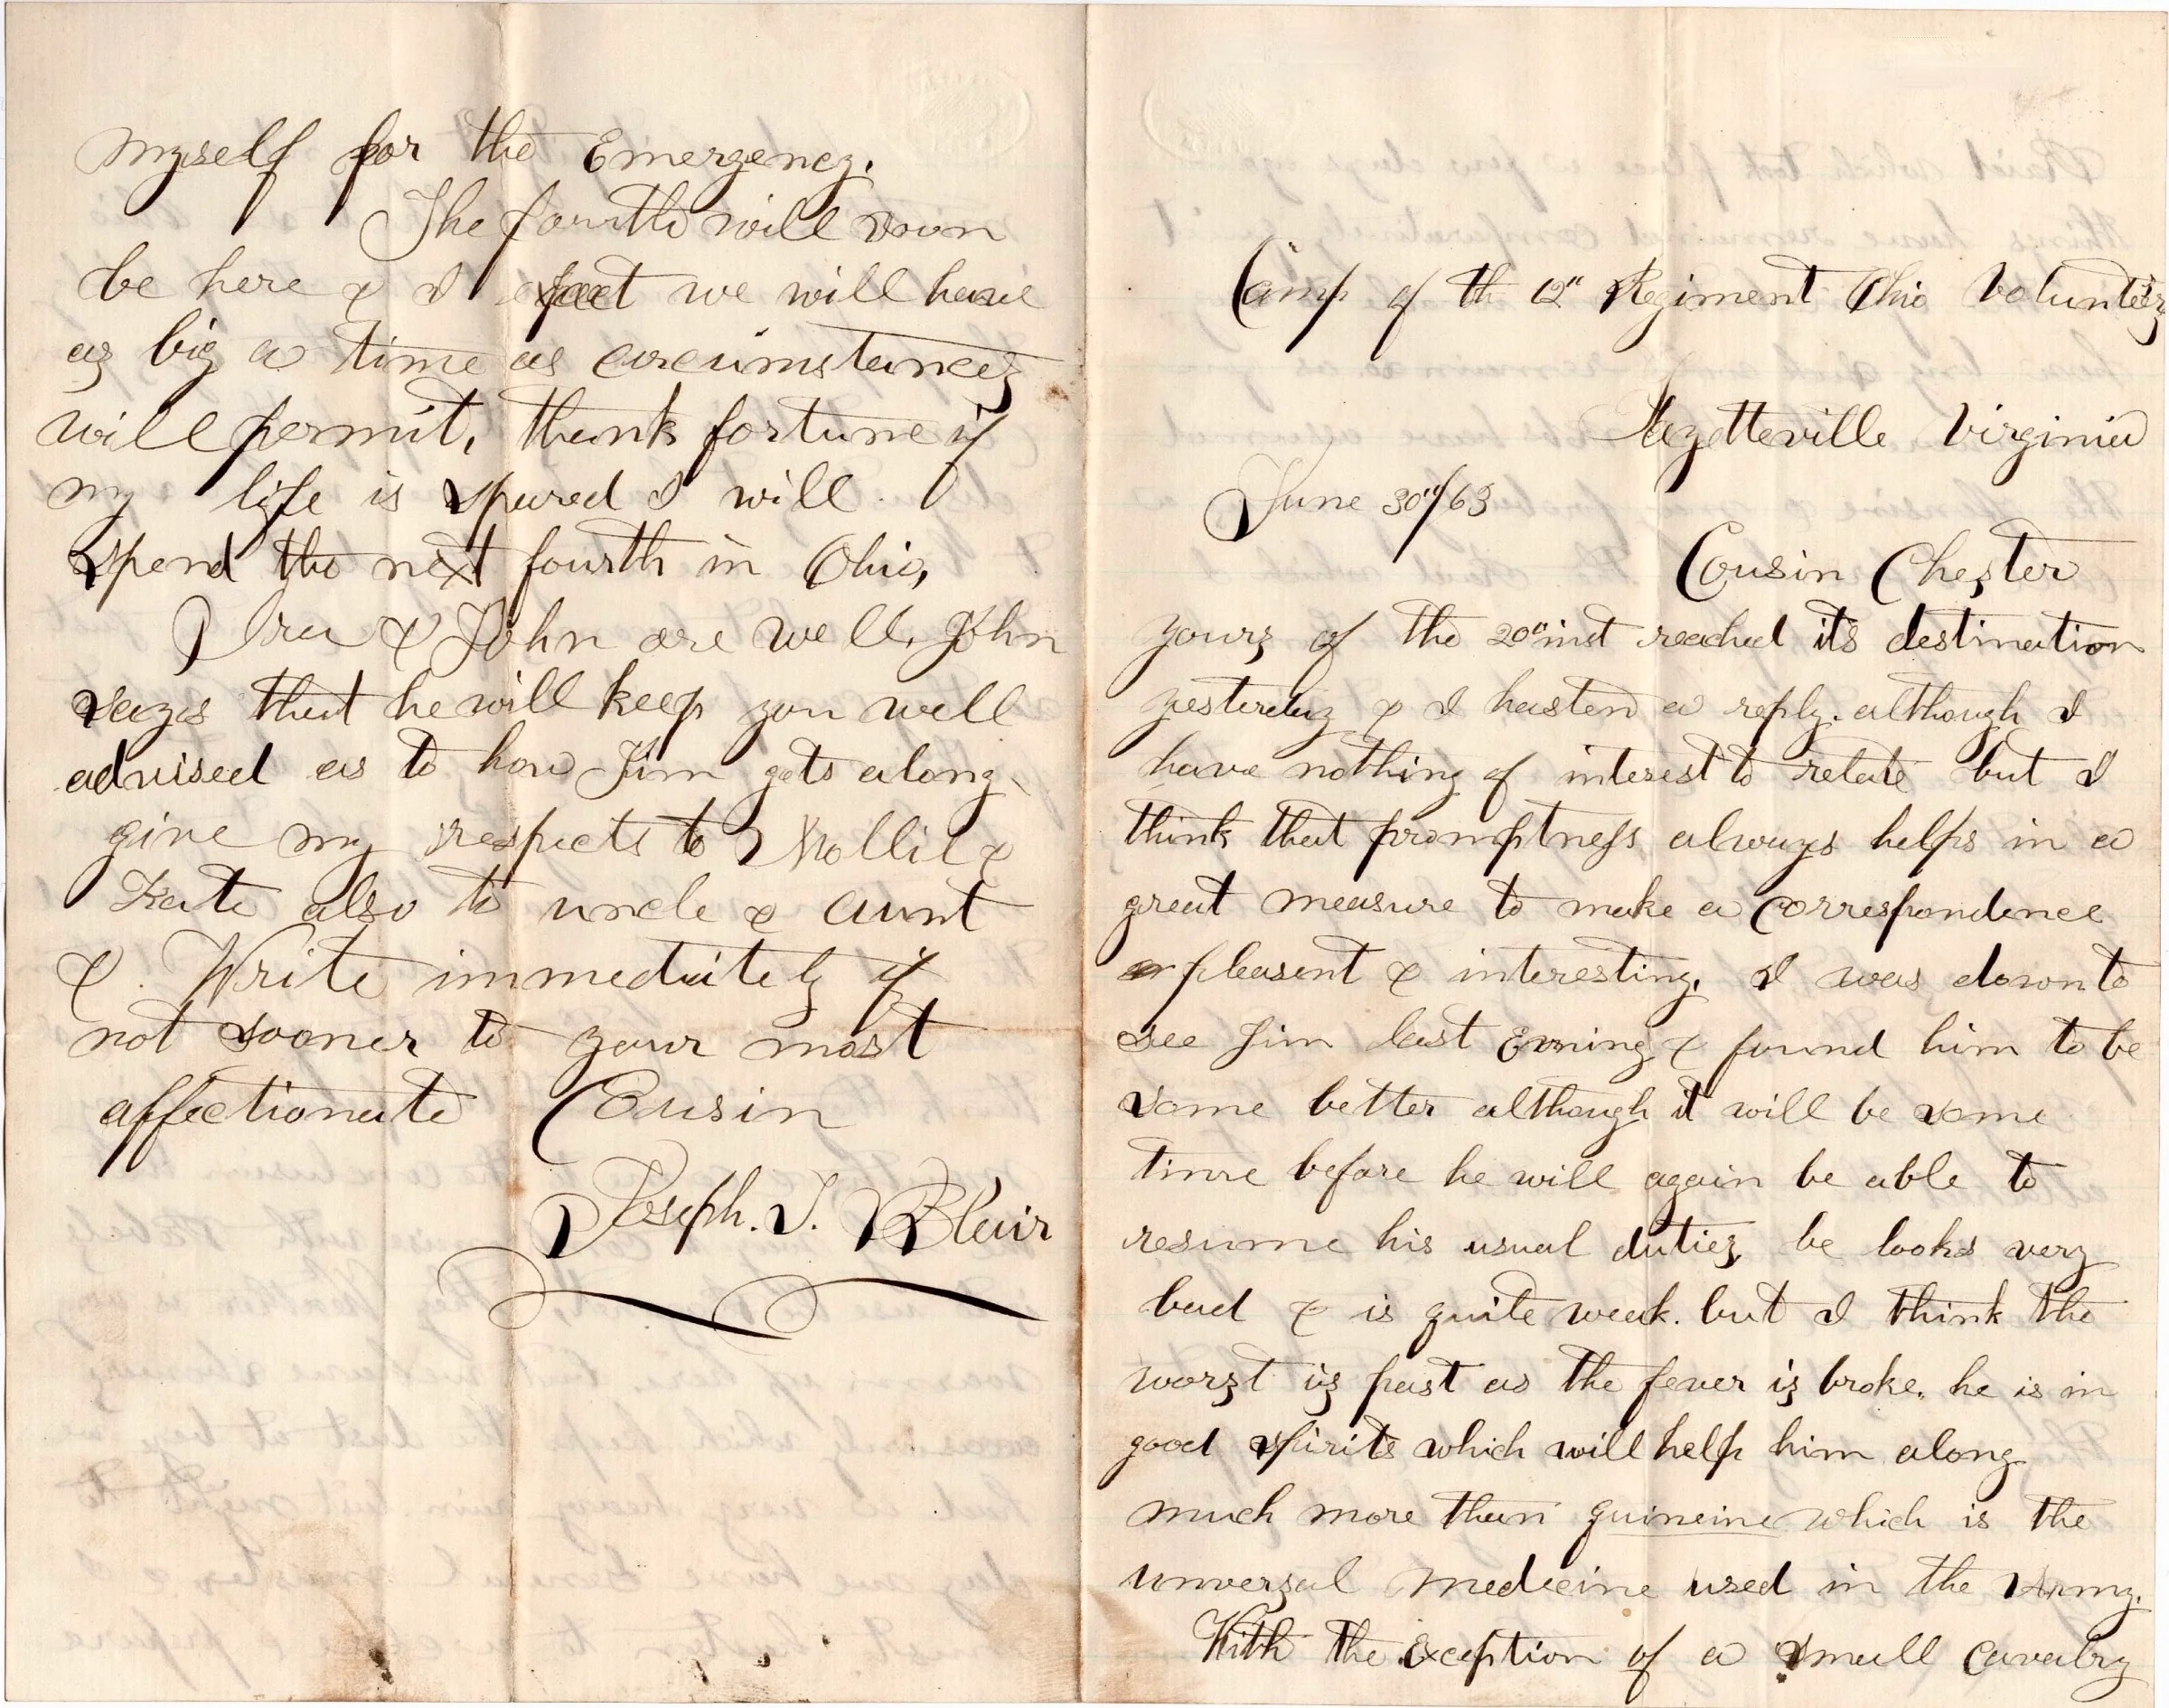 Camp of th 12" Regiment Ohio Volunteers
Fayetteville Virginia
June 30"/63
Cousin Chester
yours of the 20"inst reached its destination
yesterday & I hasten a reply. although I
have nothing of interest to relate but I
think that promptness always helps in a
great measure to make a correspondence
pleasent & interesting. I was down to
see Jim last Evening & found him to be
some better although it will be some
time before he will again be able to
resume his usual duties, he looks very
bad & is quite weak. but I think the
worst is past as the fever is broke. he is in
good spirits which will help him along
much more than quineine which is the
unversal medicine used in the Army.
With the Exception of a small cavalry
myself for the Emergency.
The fourth will soon
be here & I expect we will have
as big a time as circumstances
will permit, thank fortune if
my life is spared I will
spend the next fourth in Ohio,
Ira & John are well, John
says that he will keep you well
advised as to how Jim gets along
give my respects to Mollie &
Kate also to uncle & aunt
&. Write immediately if
not sooner to your most
affectionate Cousin
Joseph. S. Blair